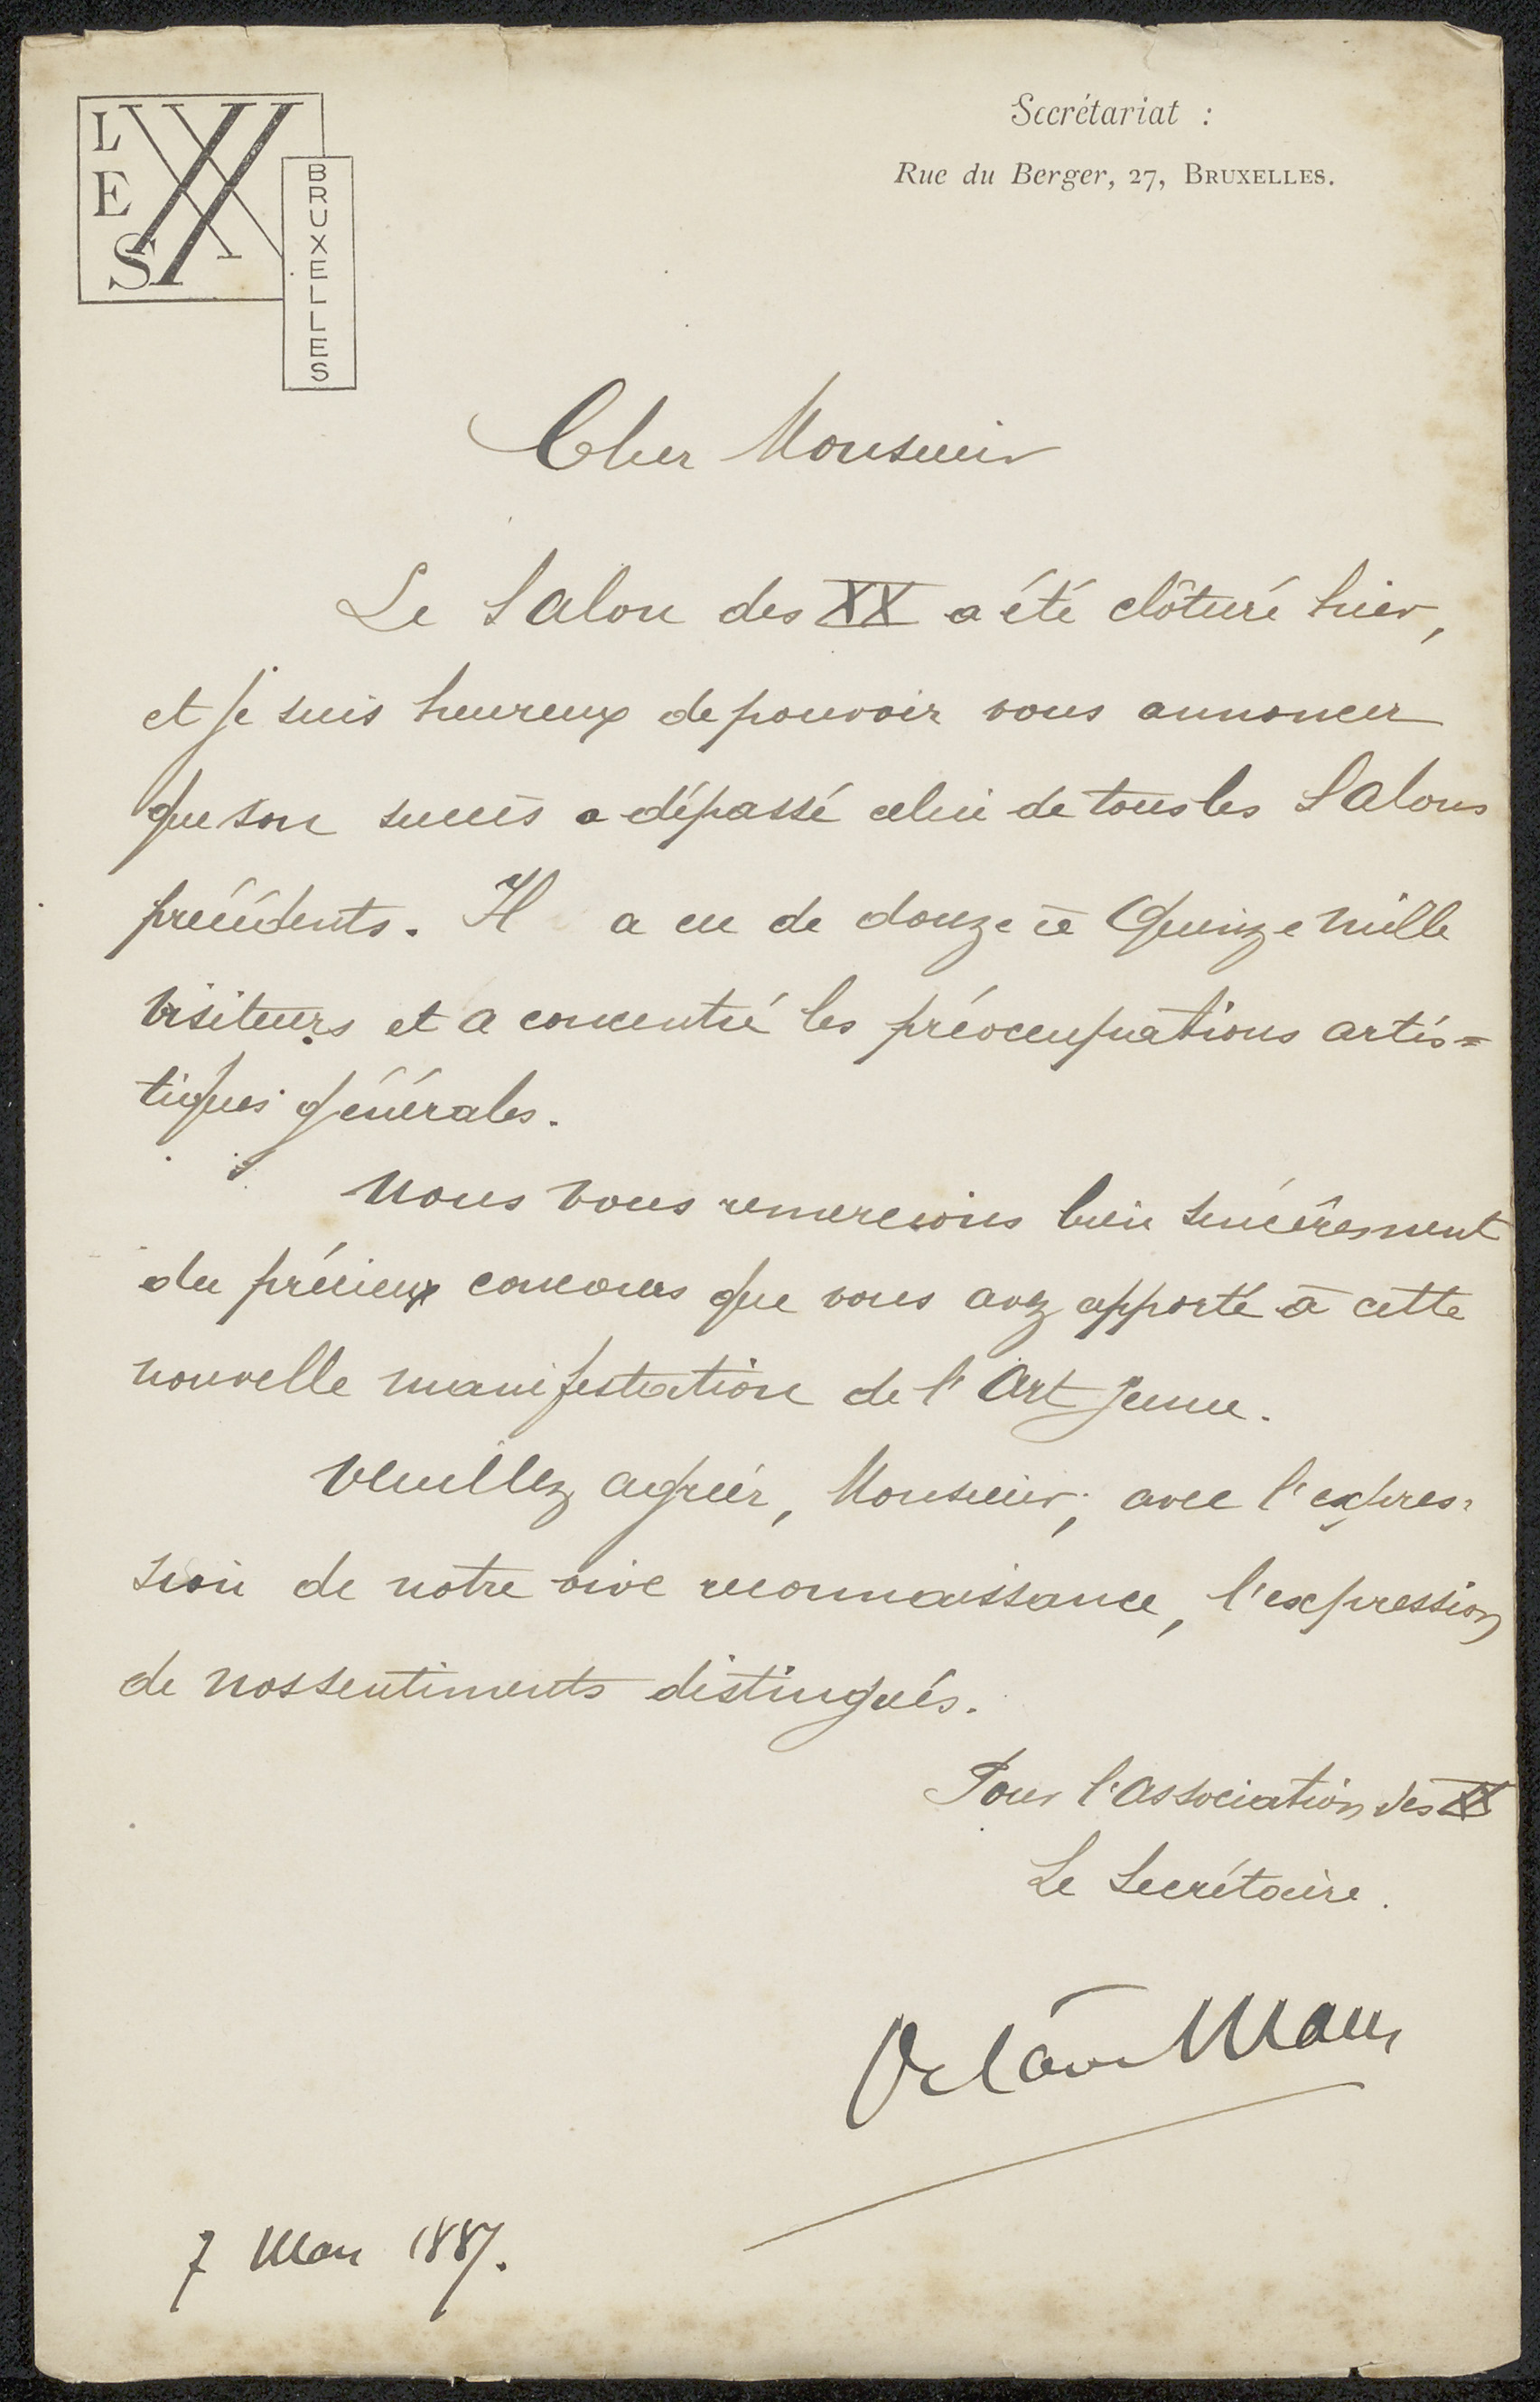 LES XX
BRUXELLES
Secrétariat :
Rue du Berger, 27, BRUXELLES.
Cher Monsieur
Le Salon des XX a été clôturé hier,
et je suis heureux de pouvoir vous annoncer
que son succès a dépassé celui de tous les Salons
précédents. Il a eu de douze à Quinze mille
visiteurs et a concentré les préoccupations artis=
tiques générales.
Nous vous remercions bien sincèrement
du précieux concours que vous avez apporté à cette
nouvelle manifestation de l'Art jeune.
Veuillez agréer, Monsieur, avec l'expres=
sion de notre vive reconnaissance, l'expression
de nos sentiments distingués.
Pour l'Association des XX
Le Secrétaire.
Octave Maus
7 Mars 1887.